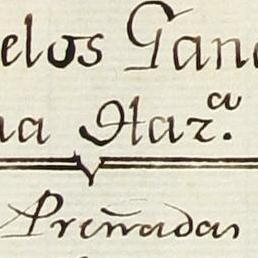 elos Gana
na Haz.ᵃ
Preñadas